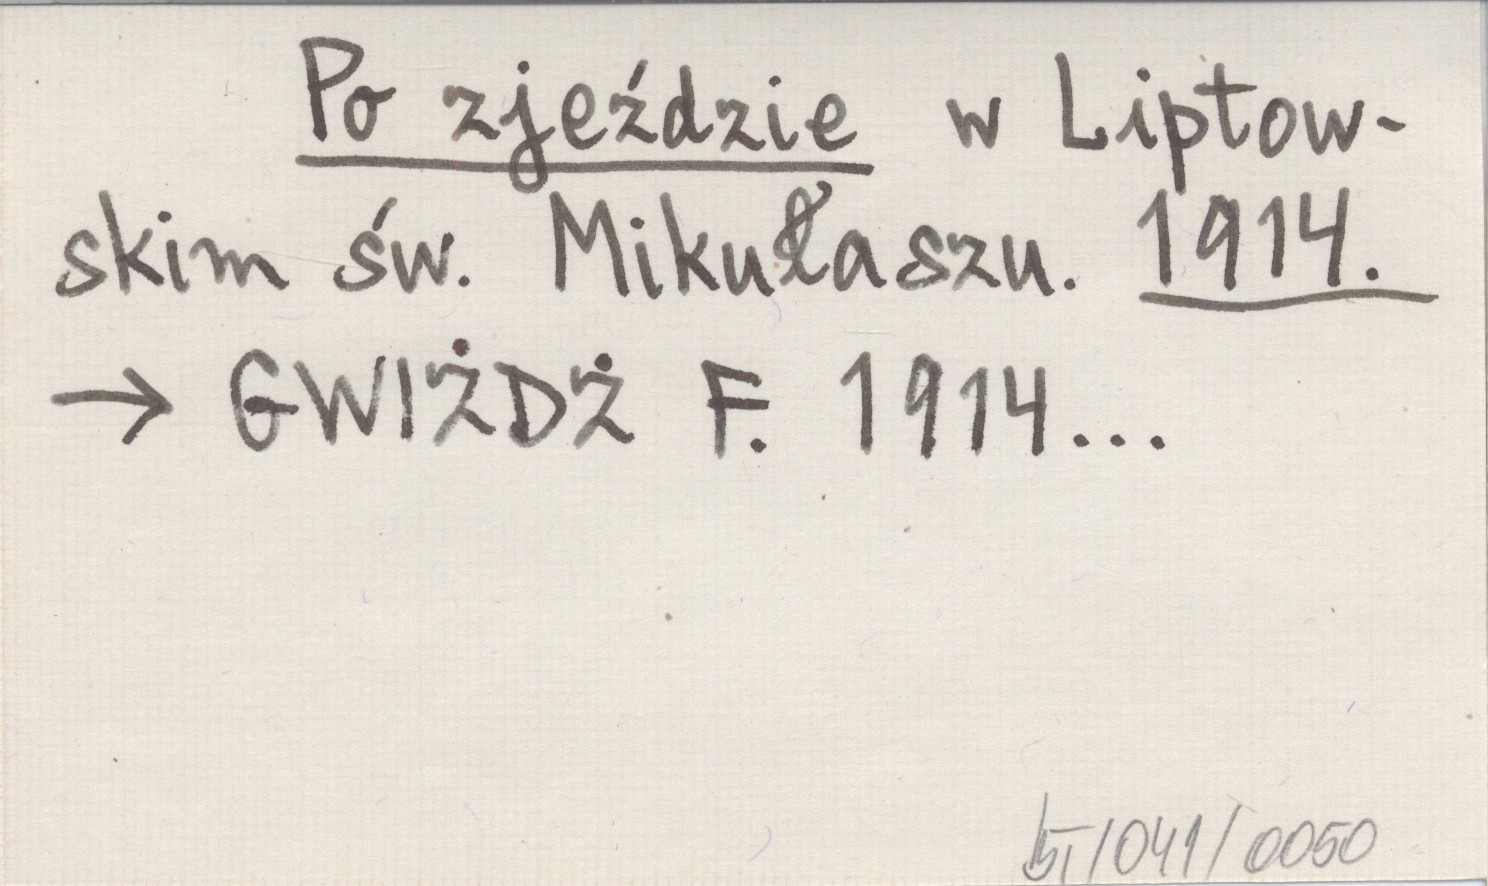 Po zjeździe w Liptow-
skim św. Mikułaszu. 1914.
→ GWIŻDŻ F. 1914...
/041/0050